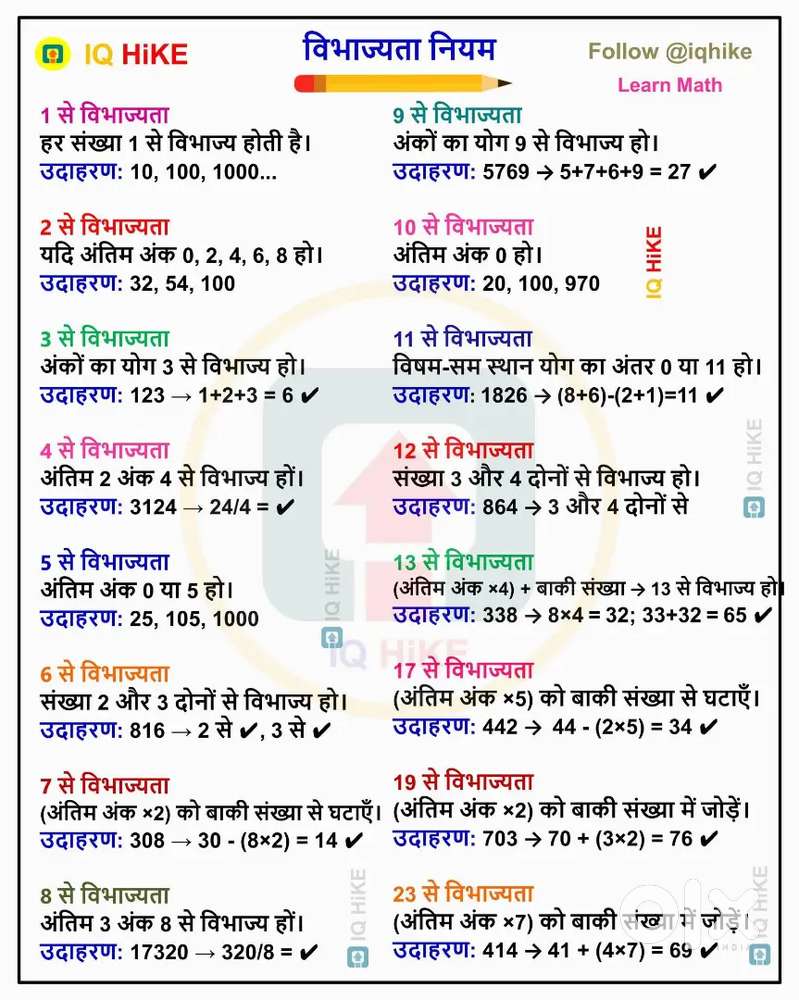 IQ HiKE
विभाज्यता नियम
Follow @iqhike
Learn Math
1 से विभाज्यता
हर संख्या 1 से विभाज्य होती है।
उदाहरण: 10, 100, 1000...
2 से विभाज्यता
यदि अंतिम अंक 0, 2, 4, 6, 8 हो।
उदाहरण: 32, 54, 100
3 से विभाज्यता
अंकों का योग 3 से विभाज्य हो।
उदाहरण: 123 → 1+2+3 = 6 ✔
4 से विभाज्यता
अंतिम 2 अंक 4 से विभाज्य हों।
उदाहरण: 3124 → 24/4 = ✔
5 से विभाज्यता
अंतिम अंक 0 या 5 हो।
उदाहरण: 25, 105, 1000
6 से विभाज्यता
संख्या 2 और 3 दोनों से विभाज्य हो।
उदाहरण: 816 → 2 से ✔, 3 से ✔
7 से विभाज्यता
(अंतिम अंक ×2) को बाकी संख्या से घटाएँ।
उदाहरण: 308 → 30 - (8×2) = 14 ✔
8 से विभाज्यता
अंतिम 3 अंक 8 से विभाज्य हों।
उदाहरण: 17320 → 320/8 = ✔
9 से विभाज्यता
अंकों का योग 9 से विभाज्य हो।
उदाहरण: 5769 → 5+7+6+9 = 27 ✔
10 से विभाज्यता
अंतिम अंक 0 हो।
उदाहरण: 20, 100, 970
IQ HiKE
11 से विभाज्यता
विषम-सम स्थान योग का अंतर 0 या 11 हो।
उदाहरण: 1826 → (8+6)-(2+1)=11 ✔
12 से विभाज्यता
संख्या 3 और 4 दोनों से विभाज्य हो।
उदाहरण: 864 → 3 और 4 दोनों से
13 से विभाज्यता
(अंतिम अंक ×4) + बाकी संख्या → 13 से विभाज्य हो।
उदाहरण: 338 → 8×4 = 32; 33+32 = 65 ✔
17 से विभाज्यता
(अंतिम अंक ×5) को बाकी संख्या से घटाएँ।
उदाहरण: 442 → 44 - (2×5) = 34 ✔
19 से विभाज्यता
(अंतिम अंक ×2) को बाकी संख्या में जोड़ें।
उदाहरण: 703 → 70 + (3×2) = 76 ✔
23 से विभाज्यता
(अंतिम अंक ×7) को बाकी संख्या में जोड़ें।
उदाहरण: 414 → 41 + (4×7) = 69 ✔
IQ HiKE
IQ HiKE
IQ HiKE
IQ HiKE
IQ HiKE
olx
INDIA